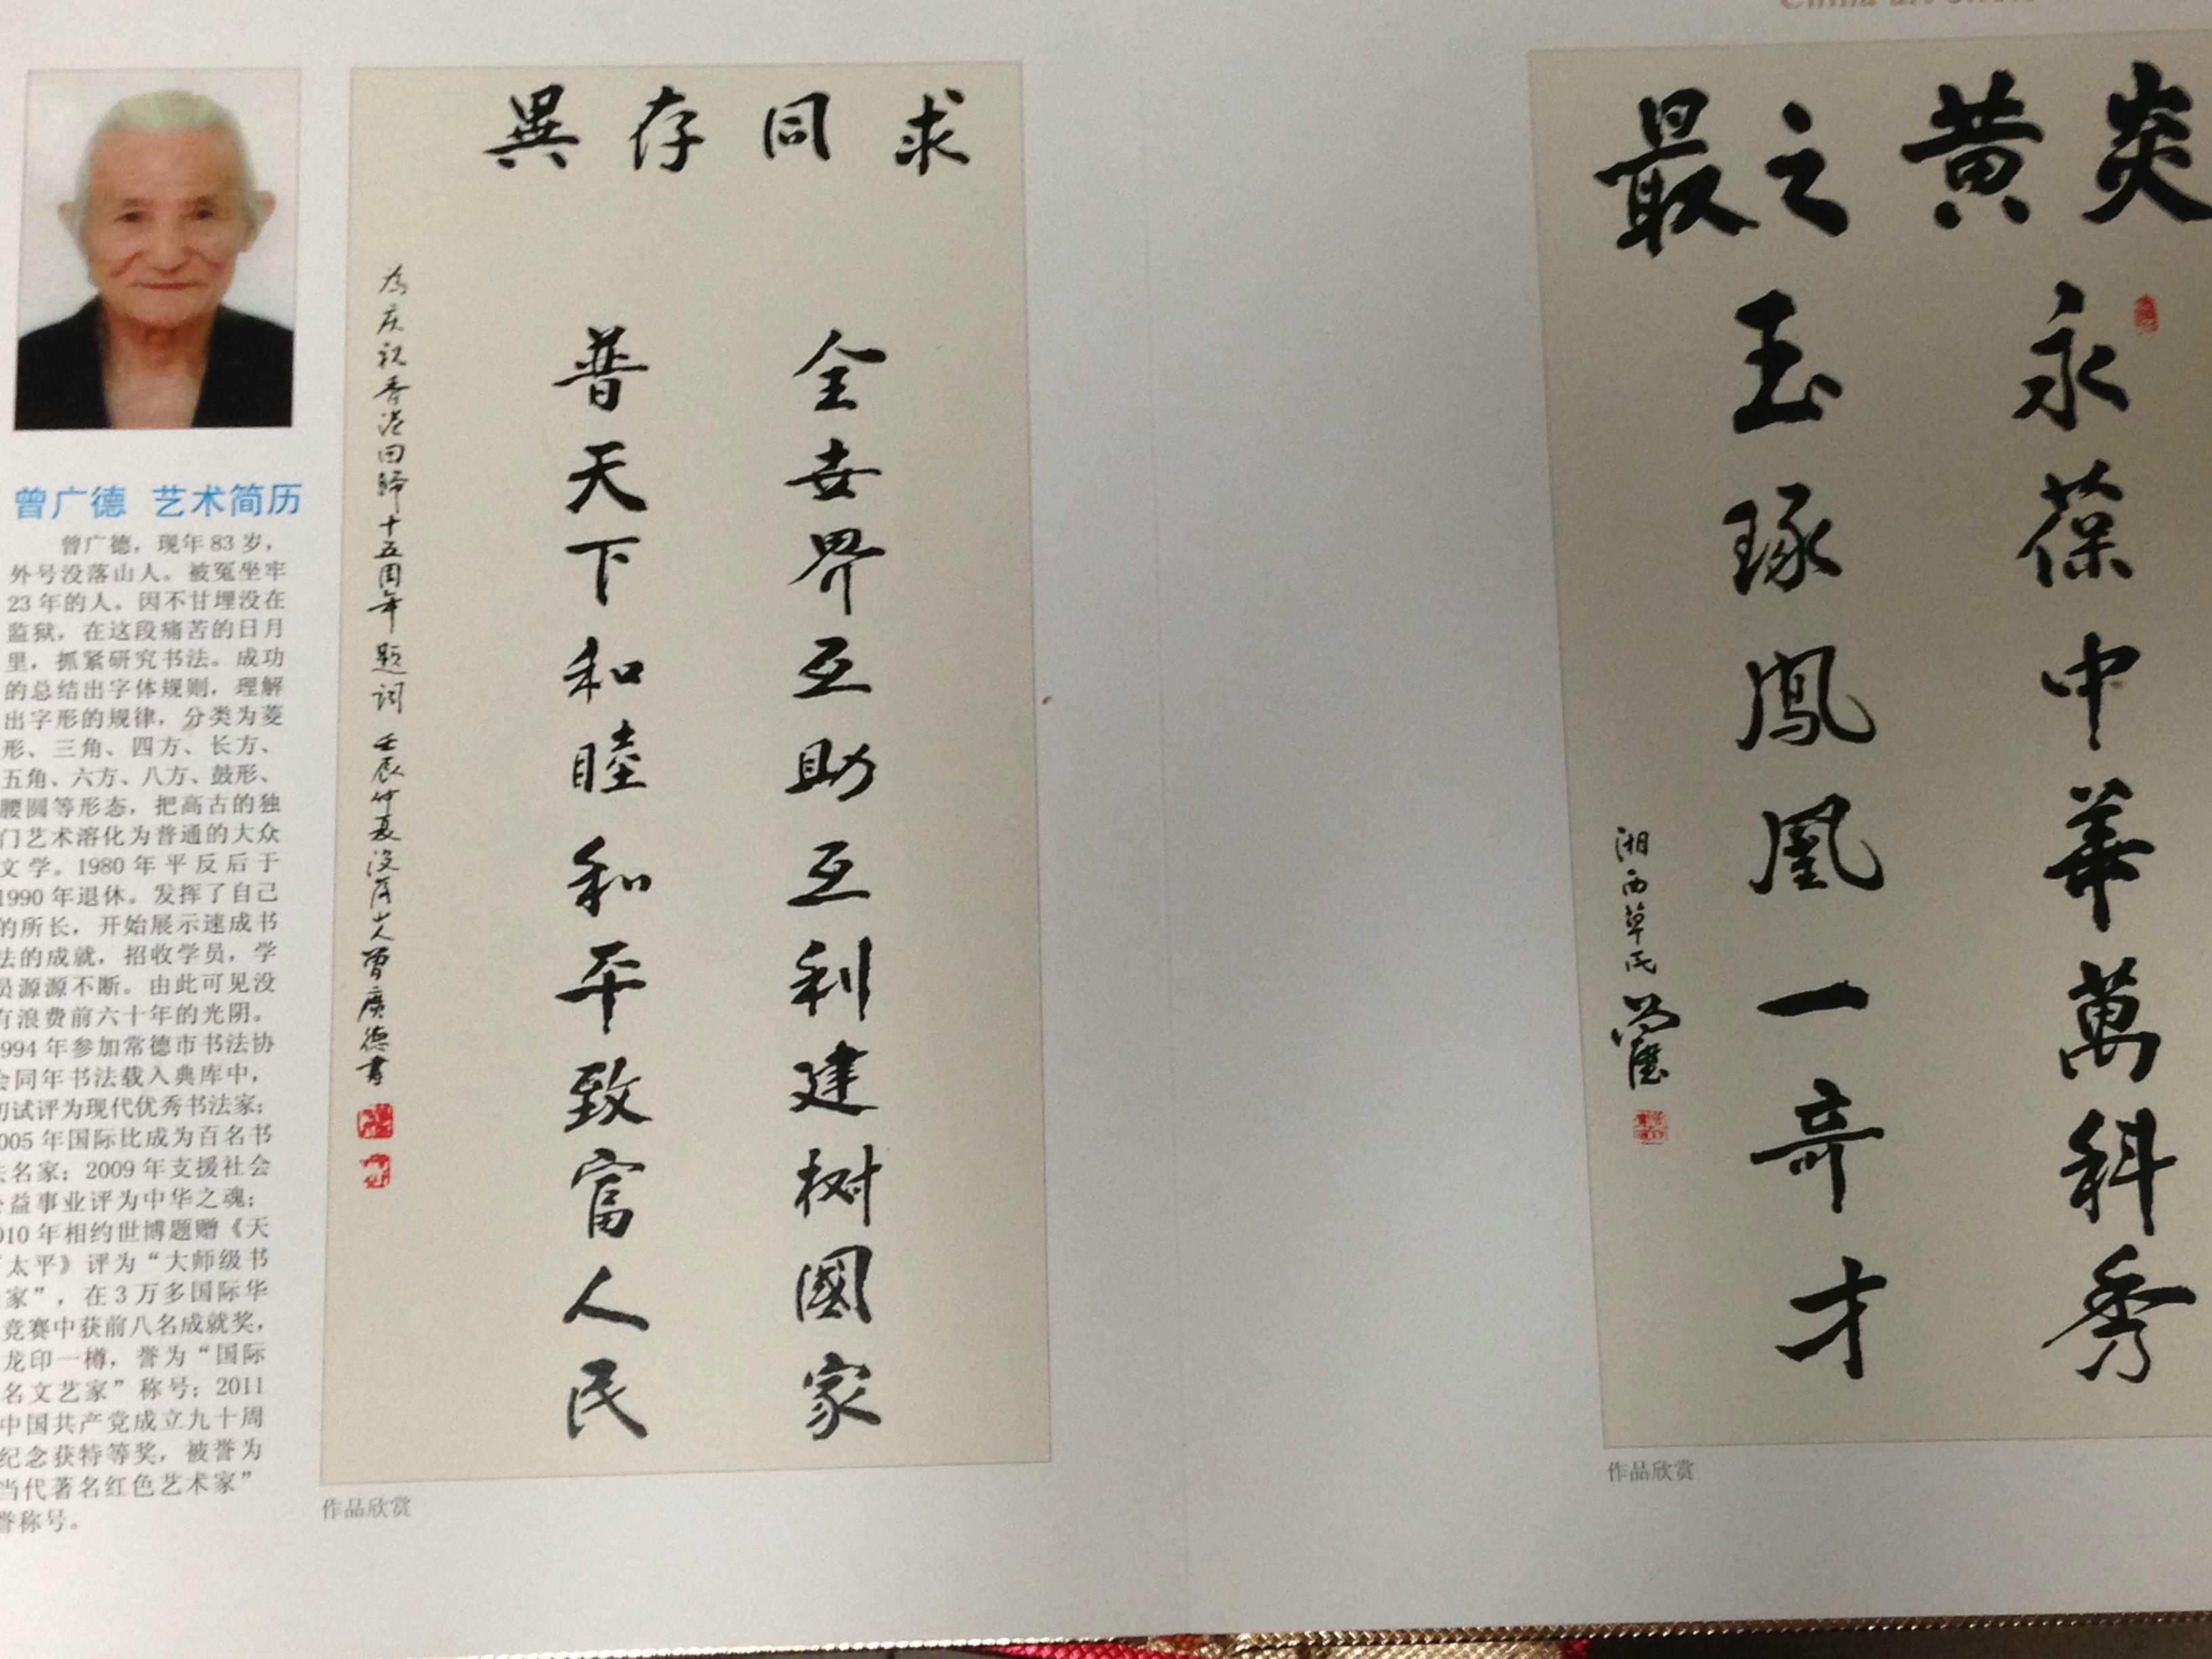 China art
曾广德 艺术简历
曾广德，现年83岁，
外号没落山人。被冤坐牢
23年的人。因不甘埋没在
监狱，在这段痛苦的日月
里，抓紧研究书法。成功
的总结出字体规则，理解
出字形的规律，分类为菱
形、三角、四方、长方、
五角、六方、八方、鼓形、
腰圆等形态，把高古的独
门艺术溶化为普通的大众
文学。1980年平反后于
1990年退休。发挥了自己
的所长，开始展示速成书
法的成就，招收学员，学
员源源不断。由此可见没
有浪费前六十年的光阴。
994年参加常德市书法协
会同年书法载入典库中，
初试评为现代优秀书法家；
005年国际比成为百名书
法名家；2009年支援社会
公益事业评为中华之魂；
010年相约世博题赠《天
下太平》评为“大师级书
家”，在3万多国际华
竞赛中获前八名成就奖，
龙印一樽，誉为“国际
名文艺家”称号；2011
中国共产党成立九十周
纪念获特等奖，被誉为
当代著名红色艺术家”
誉称号。
求同存異
全世界互助互利建树國家
普天下和睦和平致富人民
為庆祝香港回歸十五周年题词 壬辰仲夏没落山人曾廣德書
作品欣赏
炎黄之最
永葆中華萬科秀
玉琢鳳凰一奇才
湘西草民
作品欣赏